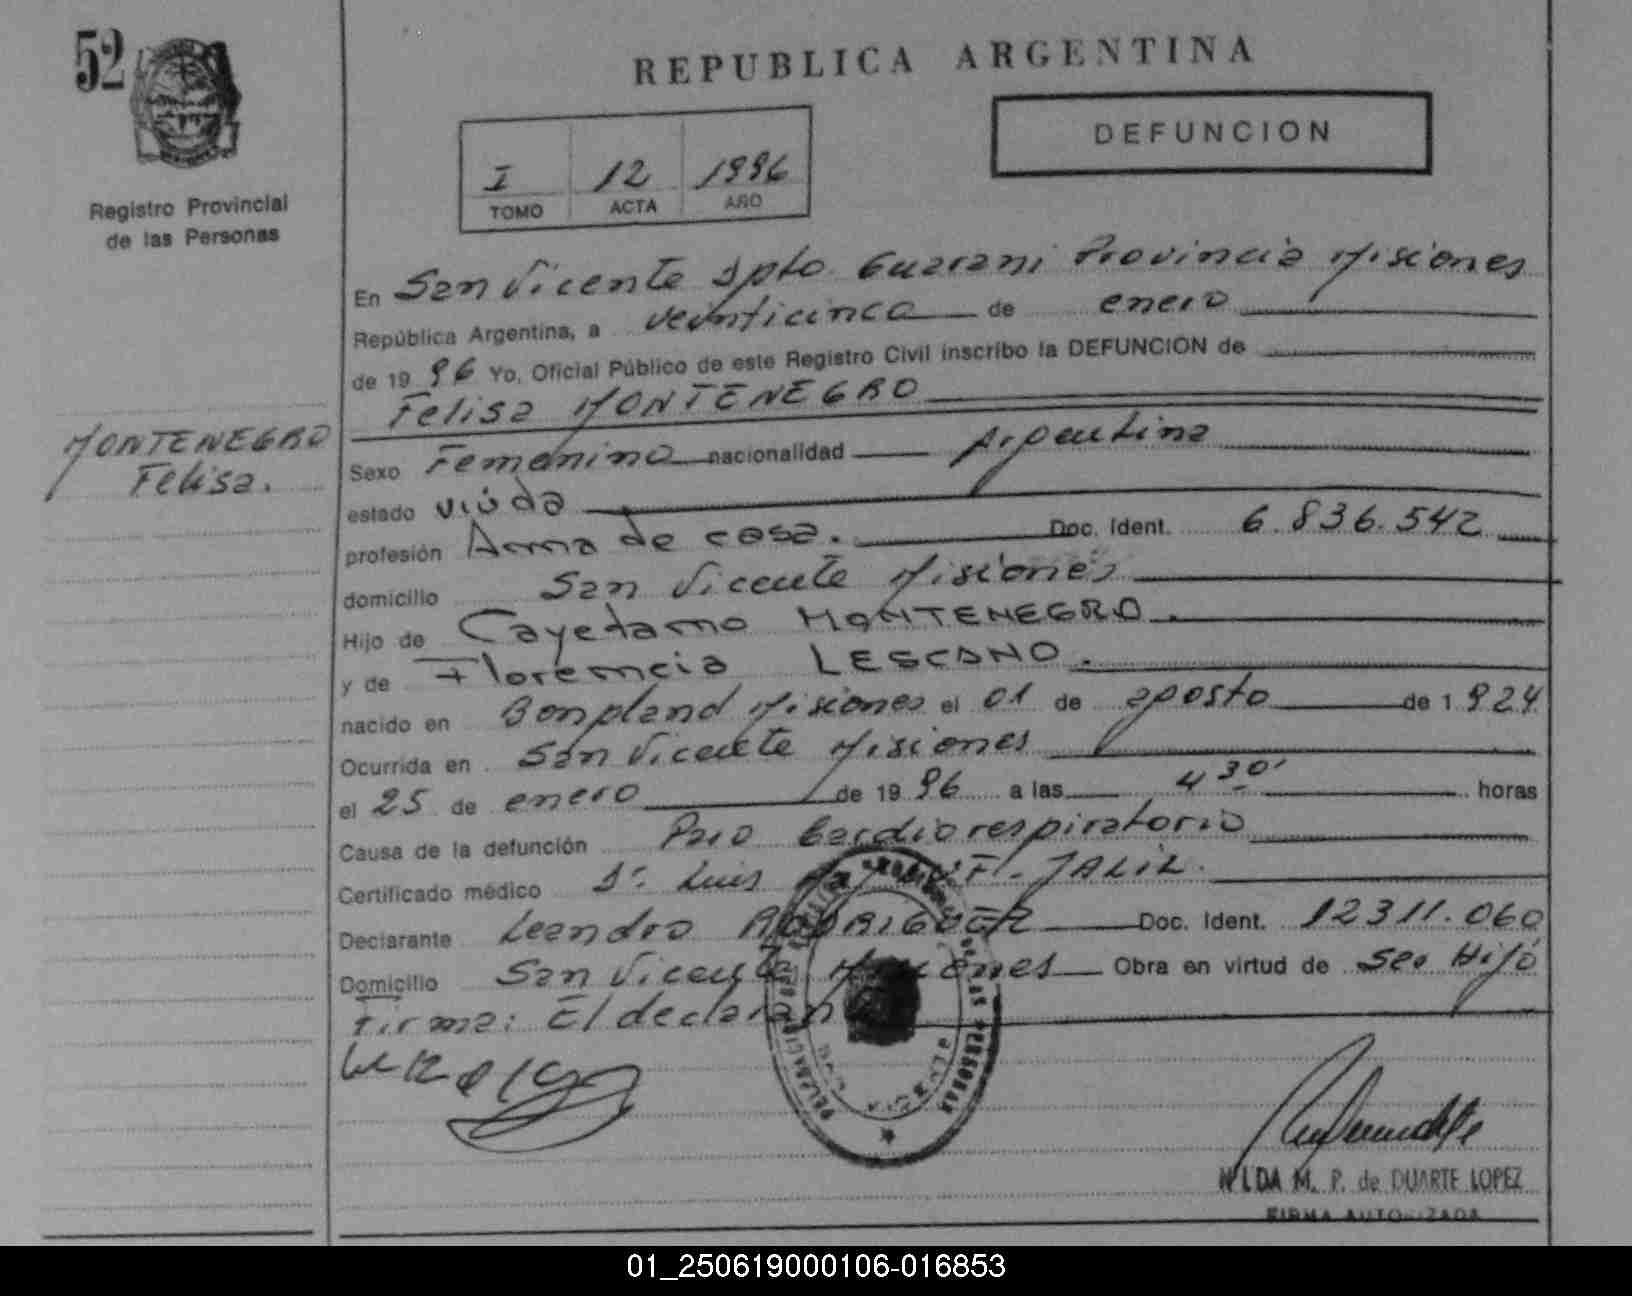 52
REPUBLICA ARGENTINA
DEFUNCION
I 12 1996
TOMO ACTA AÑO
Registro Provincial
de las Personas
En San Vicente Dpto. Guarani Provincia Misiones
República Argentina, a veinticinco de enero
de 19 96 Yo, Oficial Público de este Registro Civil inscribo la DEFUNCION de
Felisa MONTENEGRO
MONTENEGRO
Felisa.
Sexo Femenino nacionalidad Argentina
estado viúda
profesión Ama de casa. Doc. Ident. 6.836.542
domicilio San Vicente Misiones
Hijo de Cayetano MONTENEGRO.
y de Florencia LESCANO.
nacido en Bonpland Misiones el 01 de agosto de 1 924
Ocurrida en San Vicente Misiones
el 25 de enero de 19 96 a las 4 30' horas
Causa de la defunción Paro Cardiorespiratorio
Certificado médico Dr. Luis F. JALIL.
Declarante Leandro RODRIGUEZ Doc. Ident. 12311.060
Domicilio San Vicente Misiones Obra en virtud de ser Hijo
Firma: El declaran
DE LAS PERSONAS
NILDA M. P. de DUARTE LOPEZ
FIRMA AUTORIZADA
01_250619000106-016853